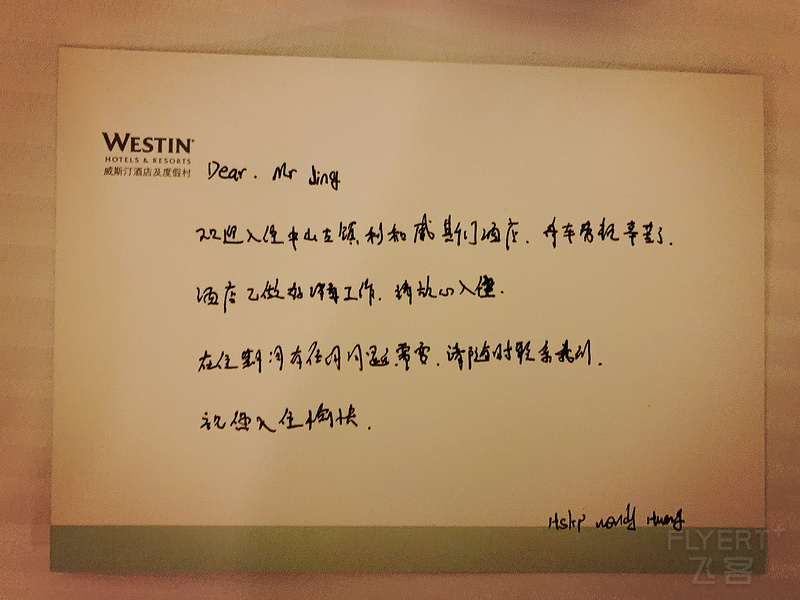 WESTIN
HOTELS & RESORTS
威斯汀酒店及度假村
Dear. Mr Jing
欢迎入住中山古镇利和威斯汀酒店, 舟车劳顿辛苦了.
酒店已做好消毒工作, 请放心入住.
在住期间有任何问题需要, 请随时联系我们.
祝您入住愉快.
Hskp Huang
FLYERT+
飞客